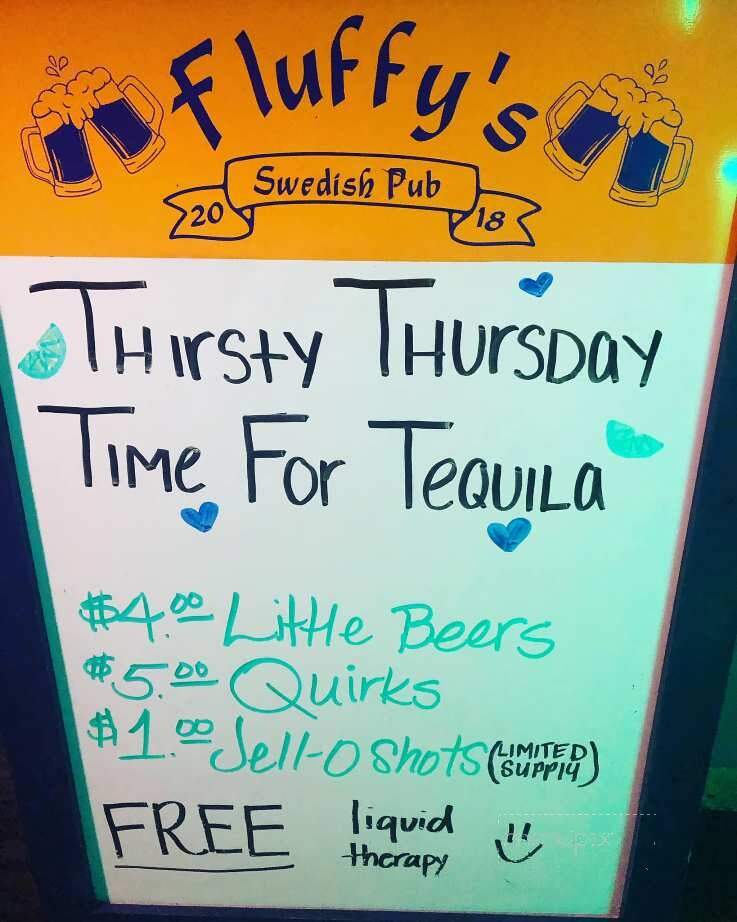 Fluffy's
Swedish Pub
20 18
THirsty THursDay
TiMe For TeQUiLa
$4.00 Little Beers
$5.00 Quirks
$1.00 Jell-O Shots (LIMITED SUPPLY)
FREE liquid therapy